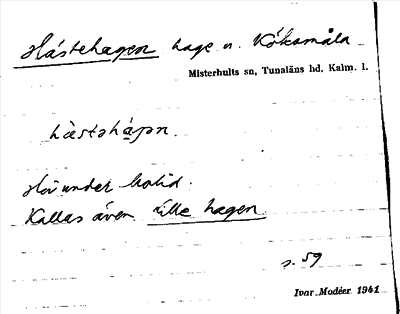 Hästehagen hage u. Kôksmåla
Misterhults sn, Tunaläns hd, Kalm. l.
hæ̀stəhàgən.
Hö under
Kallas även Lille hagen
s. 59
Ivar Modéer 1941